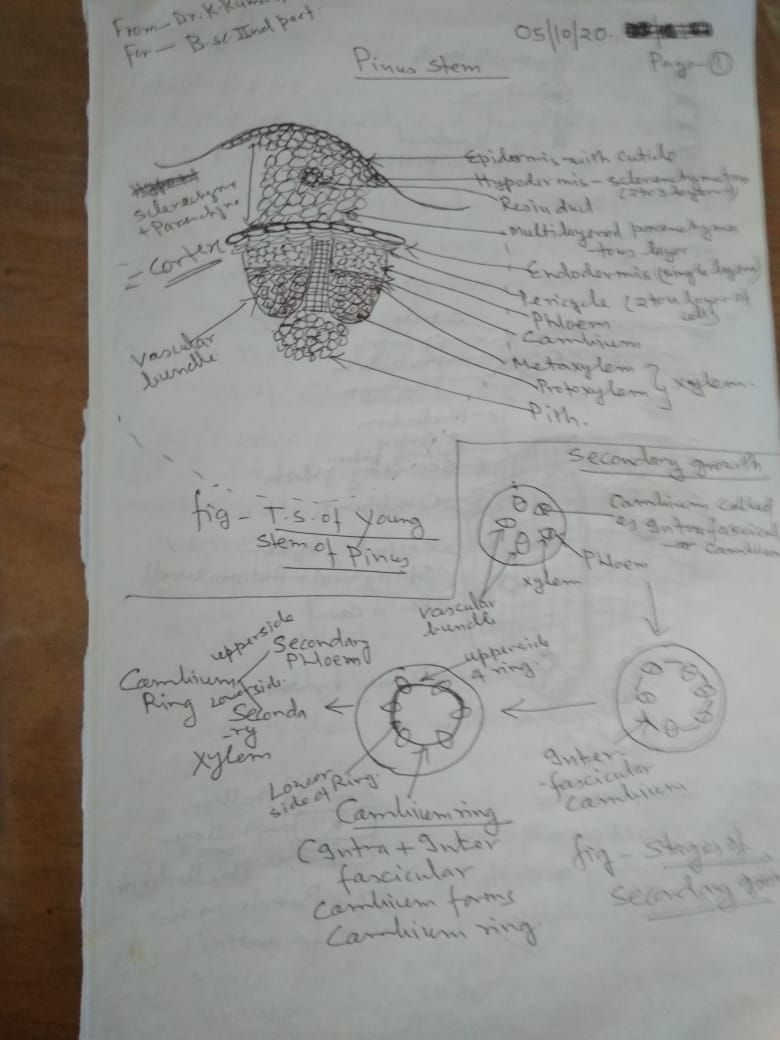 From - Dr. K. Kuma
For - B.sc. IInd part.
05/10/20.
Page - 1
Pinus stem
Epidermis with cuticle
Hypodermis - sclerenchymatous
(2 to 3 layers)
Resin duct
sclerenchyma
+ Parenchyma
= Cortex
Multilayered parenchyma
-tous layer
Endodermis (single layer)
Pericycle (2 to layer of
cell)
Phloem
Cambium
vascular
bundle
Metaxylem
Protoxylem } xylem.
Pith.
fig - T.S. of Young
stem of Pinus
Secondary growth
Cambium called
as Intrafascicul
-ar Cambium
Phloem
xylem
vascular
bundle
Inter-
-fascicular
Cambium
upperside
of ring.
Lower
side of Ring.
Cambium
Ring
upperside
Secondary
Phloem
Lowerside.
Seconda
-ry
xylem
Cambium ring
(Intra + Inter
fascicular
Cambium forms
Cambium ring.
fig - Stages of
Secondary grow